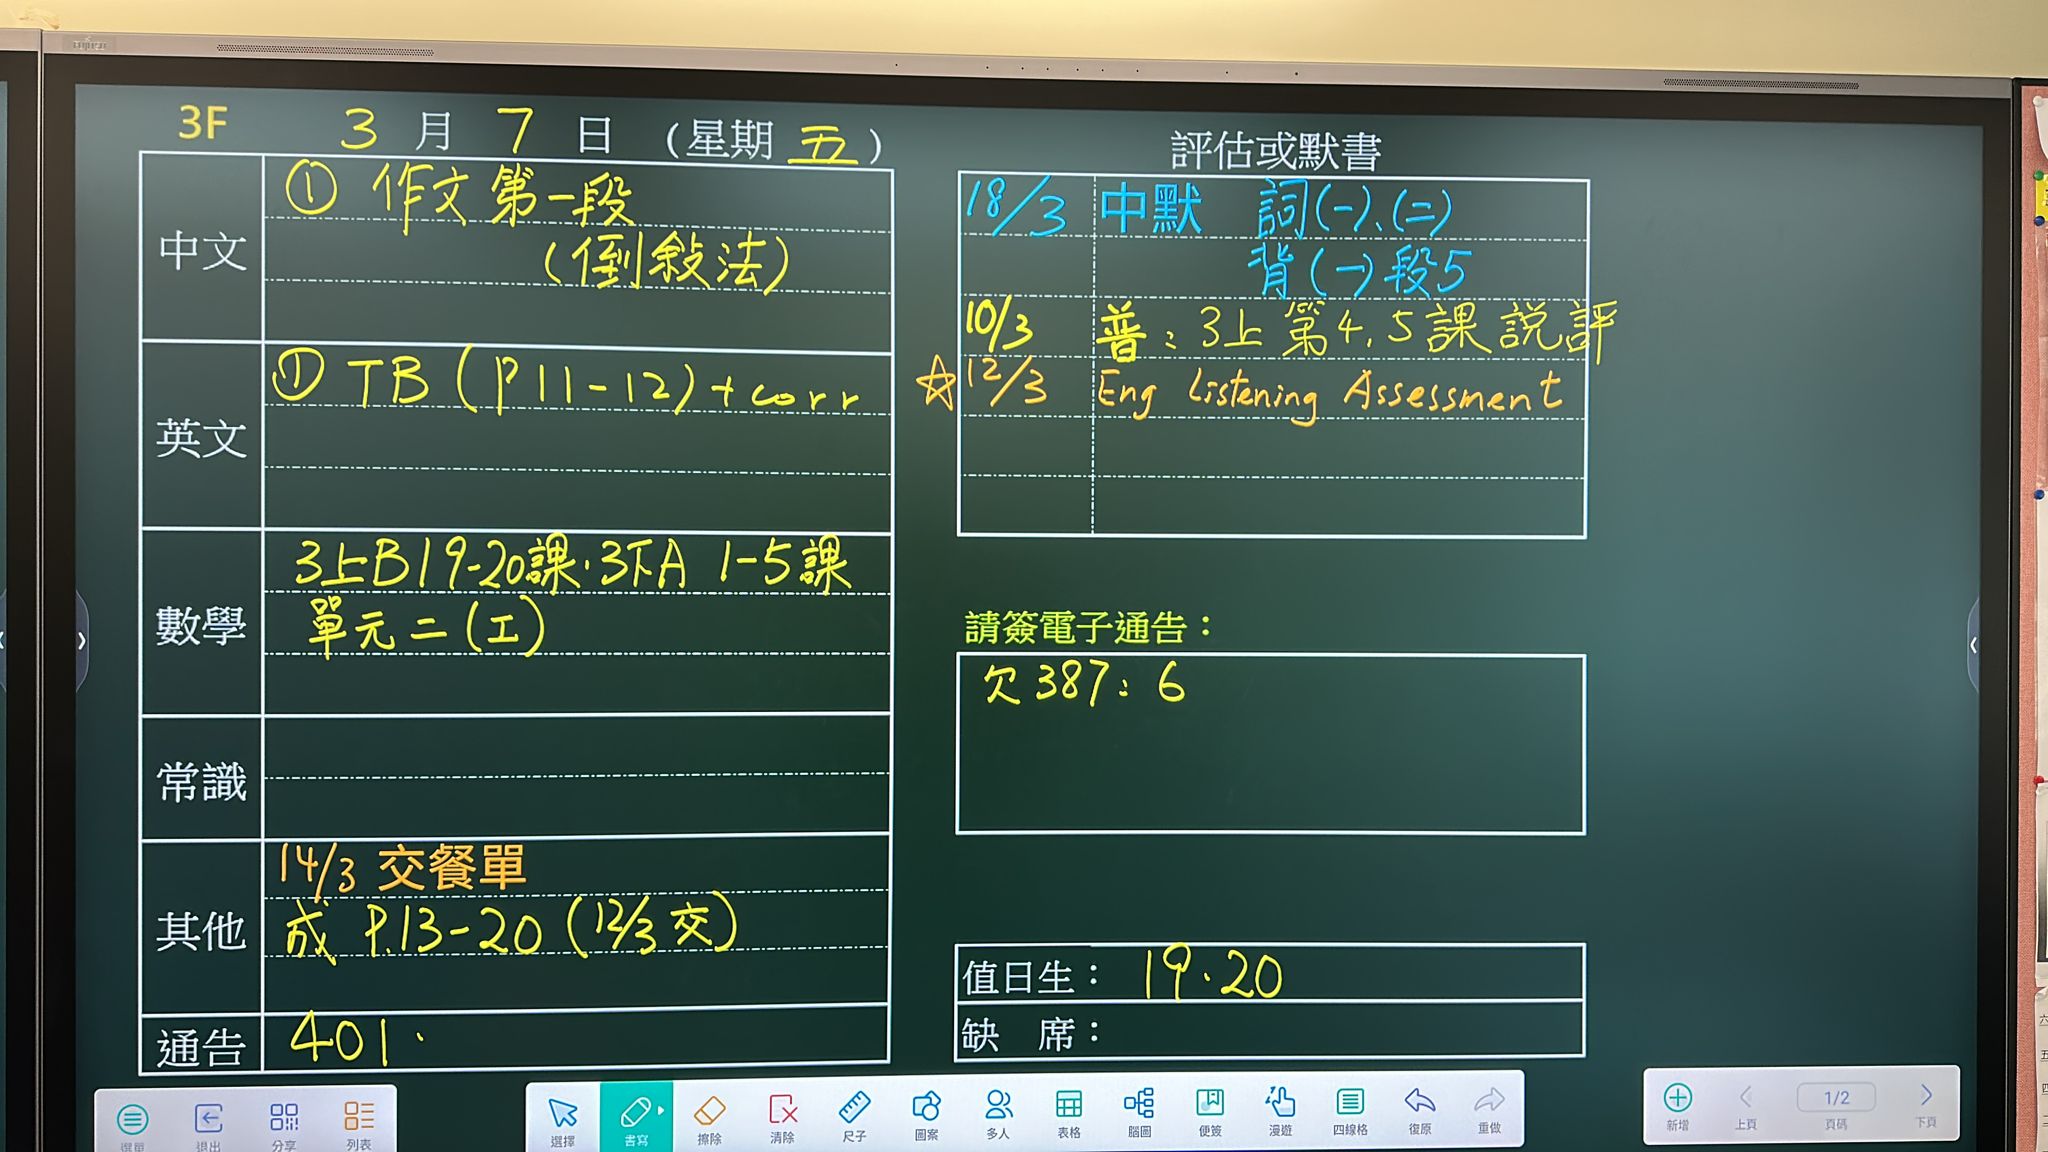 FUJITSU
3F 3月7日（星期五）
中文
① 作文第一段
（倒敍法）
英文
① TB (P11-12) + corr
數學
3上B19-20課．3下A 1-5課
單元二(工)
常識
其他
14/3 交餐單
成 P.13-20 (12/3交)
通告
401．
評估或默書
18/3 中默 詞(一)、(二)
背(一)段5
10/3 普：3上第4,5課說評
☆12/3 Eng Listening Assessment
請簽電子通告：
欠387：6
值日生： 19．20
缺 席：
選單 退出 分享 列表
選擇 書寫 擦除 清除 尺子 圖案 多人 表格 腦圖 便簽 漫遊 四線格 復原 重做
新增 上頁 1/2 頁碼 下頁